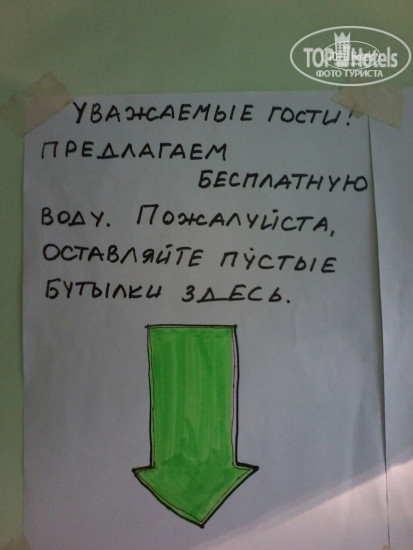 TOP Hotels
ФОТО ТУРИСТА
УВАЖАЕМЫЕ ГОСТИ!
ПРЕДЛАГАЕМ
БЕСПЛАТНУЮ
ВОДУ. ПОЖАЛУЙСТА,
ОСТАВЛЯЙТЕ ПУСТЫЕ
БУТЫЛКИ ЗДЕСЬ.